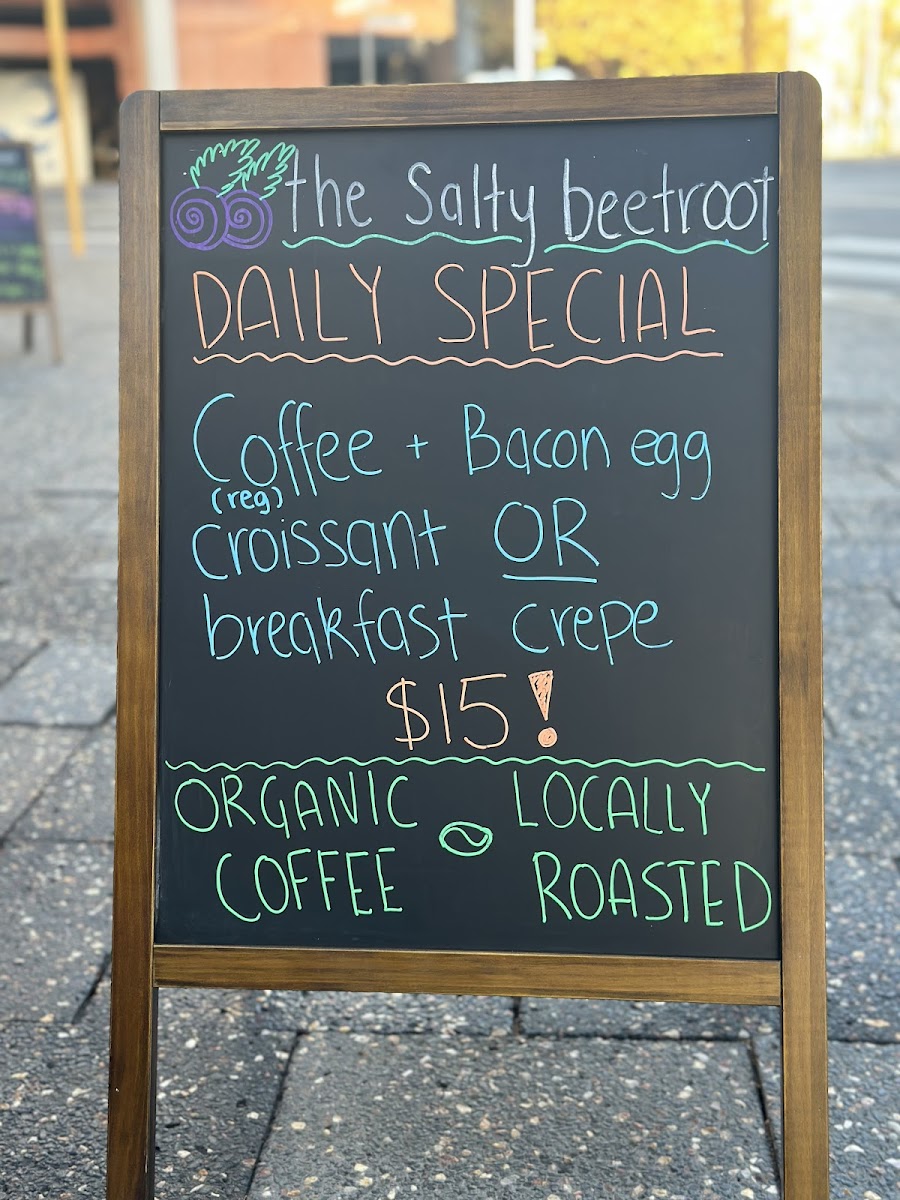 the Salty beetroot
DAILY SPECIAL
Coffee + Bacon egg
(reg)
croissant OR
breakfast crepe
$15!
ORGANIC LOCALLY
COFFEE ROASTED